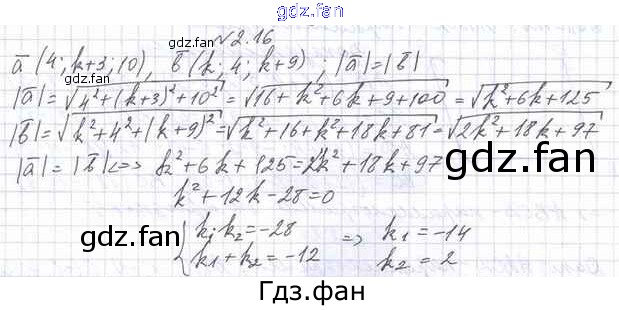 gdz.fan
№2.16
gdz.fan
a̅ (4; k+3; 10), b̅ (k; 4; k+9) ; |a̅|=|b̅|
gdz.fan
|a̅|=√(4²+(k+3)²+10²)=√(16+k²+6k+9+100)=√(k²+6k+125)
|b̅|=√(k²+4²+(k+9)²)=√(k²+16+k²+18k+81)=√(2k²+18k+97)
|a̅|=|b̅|<=> k²+6k+125=2k²+18k+97
gdz.fan
k²+12k-28=0
gdz.fan
{k₁·k₂=-28 => k₁=-14
k₁+k₂=-12 k₂=2
gdz.fan
Гдз.фан